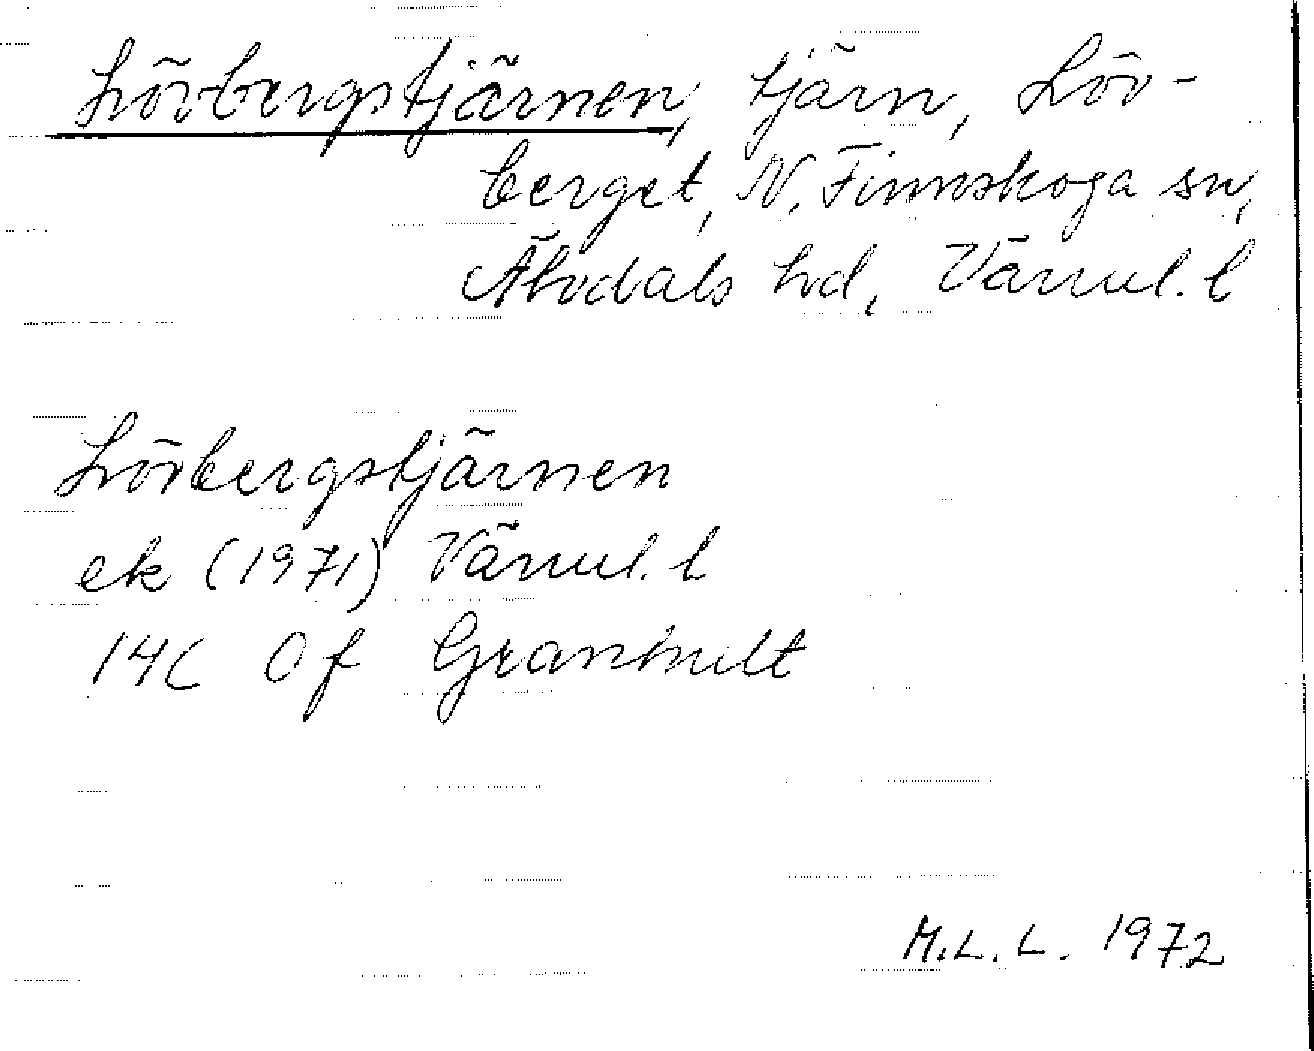 Lövbergstjärnen, tjärn, Löv-
berget, N. Finnskoga sn,
Älvdals hd, Värml. l
Lövbergstjärnen
ek (1971) Värml. l
14C Of Granhult
M.L.L. 1972